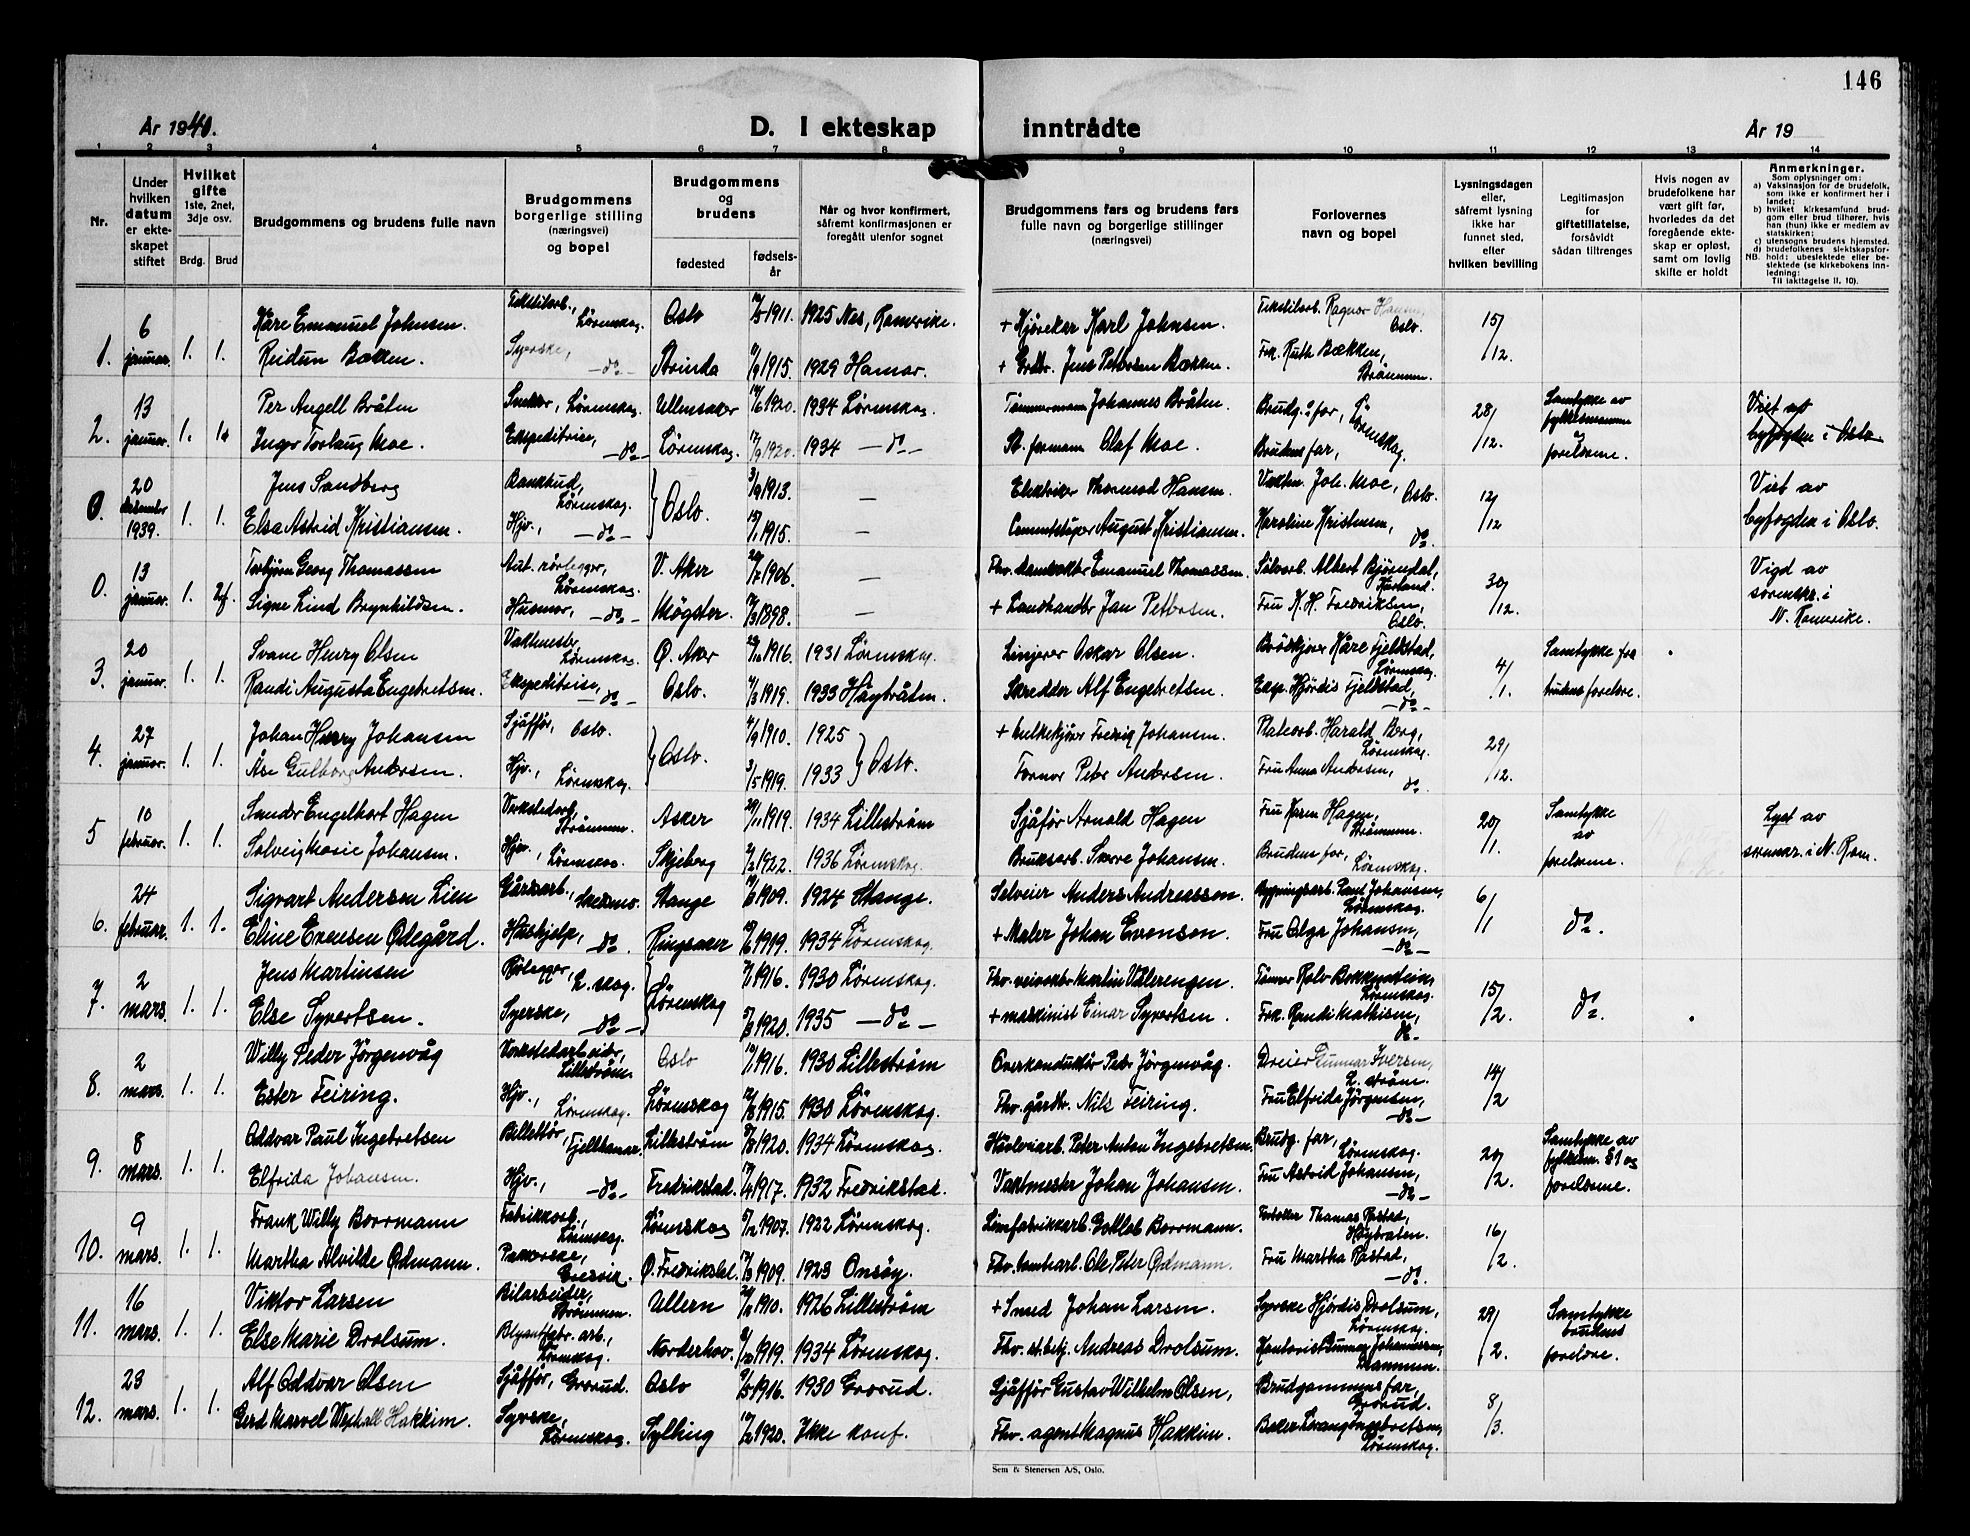 146
År 1940.
D. I ekteskap
inntrådte
År 19
1 2 3 4 5 6 7 8 9 10 11 12 13 14
Nr.
Under hvilken datum er ekteskapet stiftet
Hvilket gifte 1ste, 2net, 3dje osv.
Brdg. Brud
Brudgommens og brudens fulle navn
Brudgommens borgerlige stilling (næringsvei) og bopel
Brudgommens og brudens
fødested
fødselsår
Når og hvor konfirmert, såfremt konfirmasjonen er foregått utenfor sognet
Brudgommens fars og brudens fars fulle navn og borgerlige stillinger (næringsvei)
Forlovernes navn og bopel
Lysningsdagen eller, såfremt lysning ikke har funnet sted, efter hvilken bevilling
Legitimasjon for giftetillatelse, forsåvidt sådan tiltrenges
Hvis nogen av brudefolkene har vært gift før, hvorledes da det foregående ekteskap er opløst, samt om lovlig skifte er holdt
Anmerkninger.
Som oplysninger om:
a) Vaksinasjon for de brudefolk, som ikke er konfirmert her i landet;
b) hvilket kirkesamfund brudgom eller brud tilhører, hvis han (hun) ikke er medlem av statskirken;
c) utensogns brudens hjemsted.
d) brudefolkenes slektskapsforhold: ubeslektede eller beslektede (se kirkebokens innledning:
NB.
Til iakttagelse II. 10).
6 Kåre Emanuel Johnsen. Tekstilarb., Lørenskog. Oslo 1911. 1925 Nes, Romerike. + Kjørekar Karl Johnsen. Tekstilarb. Ragnar Oslo. 15/
1. januar. 1. 1. Reidun Bækken. Syerske, -do- Strinda 1915. 1929 Hamar. + Grdbr. Jens Pettersen Bækken. Frk. Ruth Bækken, Strømmen. 12.
13 Per Angell Bråten Snekker, Lørenskog. Ullensaker 1920. 1934 Lørenskog. Tømmermann Johannes Bråten. Brudg.s far, Lørenskog. 28/ Samtykke av fylkesmannen Viet av
2. januar. 1. 1. Inger Torlaug Moe. Ekspeditrise, -do- Lørenskog. 1920. 1934 -do- St. formann Olaf Moe. Brudens far, 12. og foreldrene. byfogden i Oslo.
20 Jens Sandberg Bankbud, Lørenskog. Oslo. 3/9 1913. - Elektriker Thormod Hansen. Vaktm. Joh. Moe, Oslo. 12/ Viet av
0. desember 1939. 1. 1. Elsa Astrid Kristiansen. Hjv., -do- 15/1 1915. - Cementstøper August Kristiansen. Karoline Kristensen, do. 12 byfogden i Oslo.
13 Torbjørn Georg Thomassen Aut. rørlegger, Lørenskog. V. Aker 1906. - Fhv. Emanuel Thomassen. Sølvarb. Albert Bjørndal, 30/ Vigd av
0. januar. 1. 2. Signe Lind Brynhildsen. Husmor, -do- Møgster 1898. - + Landhandler Jan Pettersen. Fru K.H. Fredriksen, Oslo. 12. sorenskr. i N. Romerike.
20 Svane Henry Olsen Vaktmester, Lørenskog. Ø. Aker 1916. 1931 Lørenskog. Linjerer Oskar Olsen. Brødkjører Kåre Fjeldstad, Lørenskog. 4/ Samtykke fra
3. januar. 1. 1. Randi Augusta Engebretsen. Ekspeditrise, -do- Oslo. 1919. 1933 Høybråten. Skredder Alf Engebretsen. Eksp. Hjørdis Fjeldstad, -do- 1. brudens foreldre.
27 Johan Henry Johansen Sjåffør, Oslo. Oslo. 4/9 1910. 1925 Oslo. + Fredrig Johansen. Platearb. Harald Berg, Lørenskog. 29/
4. januar. 1. 1. Åse Gulborg Andersen. Hjv., Lørenskog. 3/5 1919. 1933 Former Peter Andersen. Fru Anna Andersen, do. 12.
10 Sander Engelhart Hagen Verkstedarb. Strømmen. Asker 1919. 1934 Lillestrøm Sjåfør Arnold Hagen Fru Karen Hagen, Strømmen. 20/ Samtykke Lyst av
5 februar. 1. 1. Solveig Marie Johansen. Hjv., Lørenskog. Skjeberg 1922. 1936 Lørenskog. Bruksarb. Sverre Johansen. Brudens far, Lørenskog. 1. av foreldrene. sorenskr. i N. Rom.
24 Sigvart Andersen Lien Gårdsarb., Skedsmo. Stange 1909. 1924 Stange. Selveier Anders Andreassen. Bygningsarb. Paul Johansen, Lørenskog. 6/
6. februar. 1. 1. Eline Evensen Ødegård. Hushjelp, do. Ringsaker 1919. 1934 Lørenskog. + Maler Johan Evenson. Fru Olga Johansen, -do- 1 do.
2 Jens Martinsen Rørlegger, L.skog. Lørenskog 1916. 1930 Lørenskog. Fhv. veivokter Martin Vålerengen. Rolv Lørenskog. 15/
7. mars. 1. 1. Else Syvertsen. Syerske, -do- 1920. 1935 -do- + maskinist Einar Syvertsen. Frk. Randi Mathisen, do. 2. do.
2 Willy Peder Jörgenvåg Verkstedarbeider, Lillestrøm. Oslo 1916. 1930 Lillestrøm Overkonduktør Peder Jörgenvåg. Dreier Gunnar Iversen, L.strøm. 14/
8. mars. 1. 1. Ester Feiring. Hjv., Lørenskog. Lørenskog 1915. 1930 Lørenskog. Fhv. gårdbr. Nils Feiring. Fru Elfrida Jörgensen, -do- 2
8 Oddvar Paul Ingebretsen Billettør, Fjellhamar. Lillestrøm 1920. 1934 Lørenskog. Peter Anton Ingebretsen. Brudg. far, Lørenskog. 20/ Samtykke av
9. mars. 1. 1. Elfrida Johansen. Hjv., -do- Fredrikstad. 1917. 1932 Fredrikstad. Vaktmester Johan Johansen. Fru Astrid Johansen, -do- 2. fylkesm. §1 og foreldrene.
9 Frank Willy Borrmann Fabrikkarb., Lørenskog. Lørenskog 1907. 1922 Lørenskog. Limfabrikkarb. Gottlob Borrmann. Thomas Råstad, Høybråten. 16/
10. mars. 1. 1. Martha Alvilde Ødmann. Pakkerske, Greåker. Ø. Fredrikstad. 1909. 1923 Onsøy. Fhv. tomtearb. Ole Peter Ødmann. Fru Martha Råstad, -do- 2.
16 Viktor Larsen Bilarbeider, Strømmen. Ullern 1910. 1926 Lillestrøm + Smed Johan Larsen. Syerske Hjördis Drolsum, Lørenskog. 29/ Samtykke
11. mars. 1. 1. Else Marie Drolsum. Blyantfabr. arb., Lørenskog. Norderhov. 1919. 1934 Lørenskog. Fhv. st.betj. Andreas Drolsum. Kontorist Gunnar Johannesen, Drammen. 2. brudens foreldre.
23 Alf Oddvar Olsen Sjåffør, Grorud. Oslo 1916. 1930 Grorud. Sjåffør Gustav Wilhelm Olsen, Brudgommens far, Grorud. 8/
12. mars. 1. 1. Gerd Marvel Hakkim. Syerske, Lørenskog. Sylling 1920. Ikke konf. Fhv. agent Magnus Hakkim. Baker Svang Ingebretsen, Lørenskog. 3.
Sem & Stenersen A/S, Oslo.